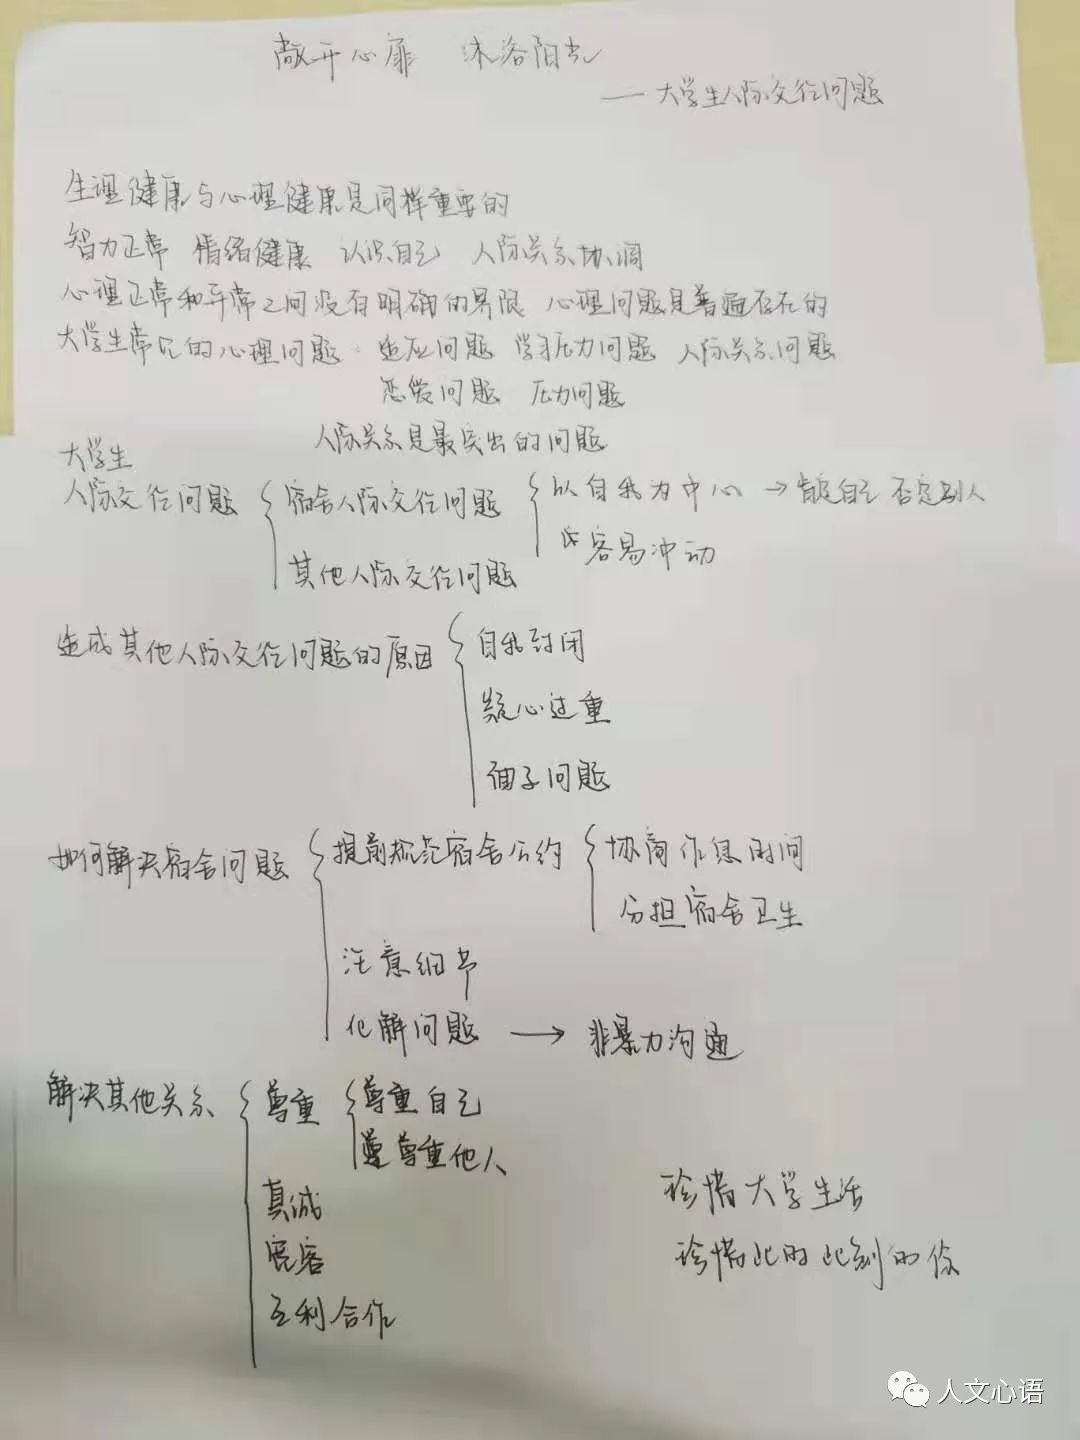 敞开心扉 沐浴阳光
——大学生人际交往问题
生理健康与心理健康是同样重要的
智力正常 情绪健康 认识自己 人际关系协调
心理正常和异常之间没有明确的界限 心理问题是普遍存在的
大学生常见的心理问题: 适应问题 学习压力问题 人际关系问题
恋爱问题 压力问题
人际关系是最突出的问题
大学生
人际交往问题 { 宿舍人际交往问题 { 以自我为中心 → 肯定自己 否定别人
容易冲动
其他人际交往问题
造成其他人际交往问题的原因 { 自我封闭
疑心过重
面子问题
如何解决宿舍问题 { 提前规范宿舍公约 { 协商作息时间
分担宿舍卫生
注意细节
化解问题 → 非暴力沟通
解决其他关系 { 尊重 { 尊重自己
尊重他人
真诚
宽容
互利合作
珍惜大学生活
珍惜此时此刻的你
人文心语